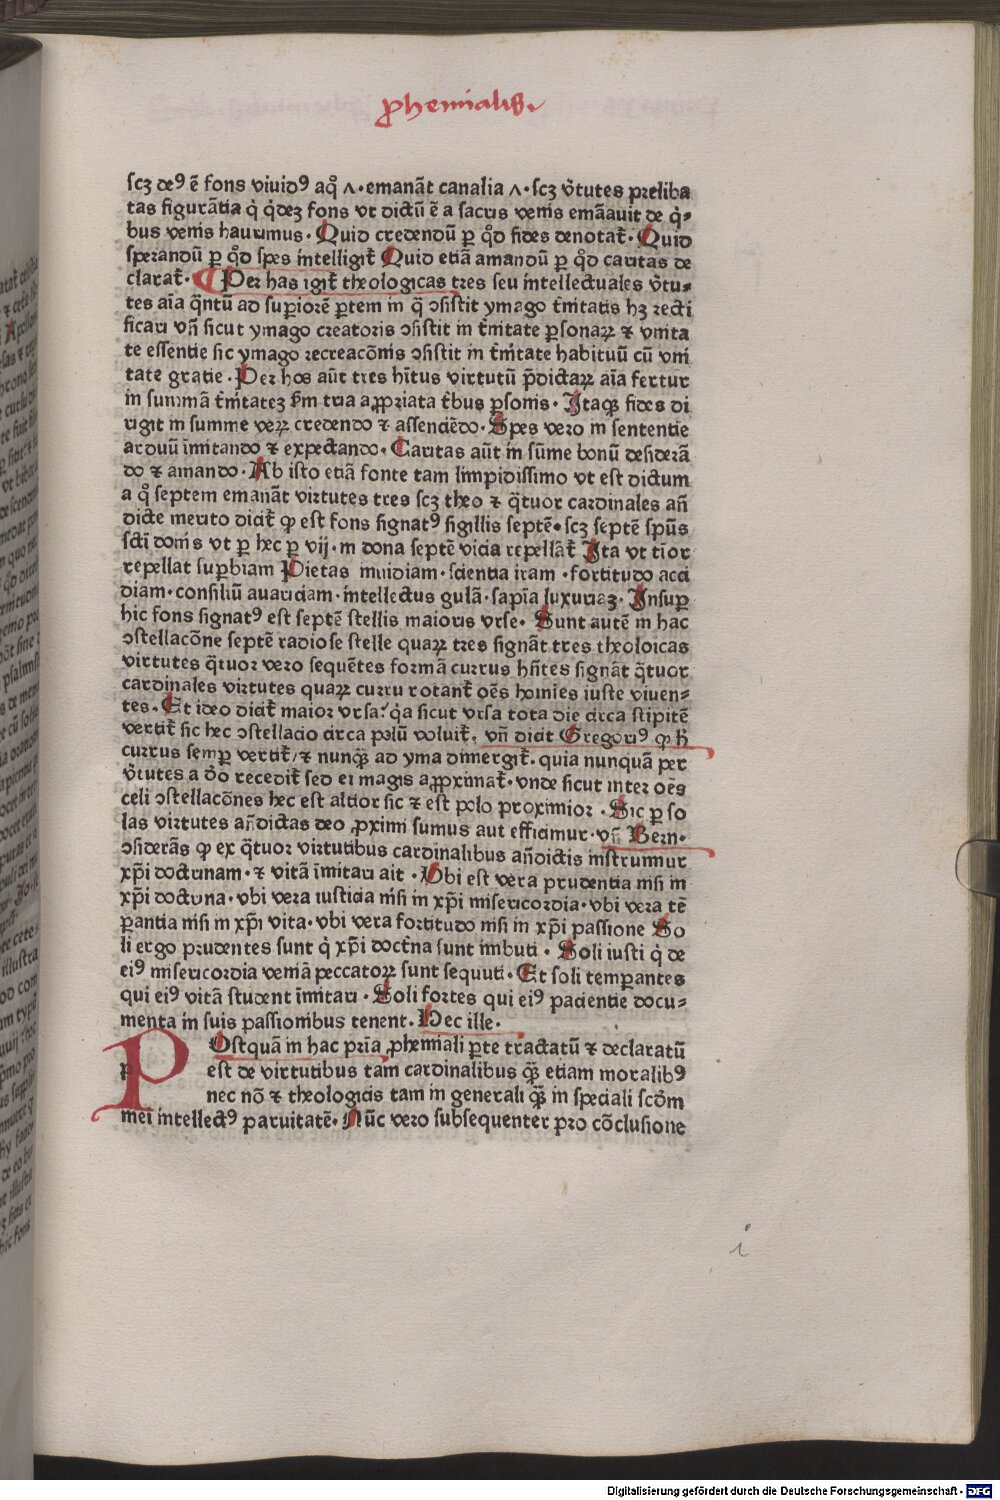 ꝓhemialis.
scꝫ deꝰ ē fons viuidꝰ aq̊ ʌ · emanāt canalia ʌ · scꝫ v̄tutes preliba
tas figurātia q̇ q̇deꝫ fons vt dictū ē a sacris venis emāauit de q̇⸗
bus venis haurimus · Quid credendū ꝑ qd̊ fides denotat̄ · Quid
sperandū ꝑ qd̊ spes intelligit̄ Quid etiā amandū ꝑ qd̊ caritas de
clarat̄ · ¶ Per has igit̄ theologicas tres seu intellectuales v̄tu⸗
tes aīa q̄ntū ad suꝑiorē ꝑtem in q̄ ↄsistit ymago t̄nitatis hꝫ recti
ficari vn̄ sicut ymago creatoris ↄsistit in t̄nitate ꝑsonaꝝ ⁊ vnita
te essentie sic ymago recreacōnis ↄsistit in t̄nitate habituū cū vni
tate gratie · Per hos aūt tres hītus virtutū p̄dictaꝝ aīa fertur
in summā t̄nitateꝫ ẜm tria aꝓpriata t̄bus ꝑsonis · Itaqꝫ fides di
rigit in summe veꝝ credendo ⁊ assenciēdo · Spes vero in sententie
arduū īmitando ⁊ expectando · Caritas aūt in sūme bonū desiderā
do ⁊ amando · Ab isto etiā fonte tam limpidissimo vt est dictum
a q̊ septem emanāt virtutes tres scꝫ theo ⁊ q̄tuor cardinales an̄
dicte merito dicit̄ ꝙ est fons signatꝰ sigillis septē · scꝫ septē spūs
sc̄i doms vt ꝑ hec ꝑ vij · m dona septē vicia repellāt̄ Ita vt tīor
repellat suꝑbiam Pietas inuidiam · scientia iram · fortitudo acci
diam · consiliū auariciam · intellectus gulā · sapīa luxuriaꝫ · Insuꝑ
hic fons signatꝰ est septē stellis maioris vrse · Sunt autē in hac
ↄstellacōne septē radiose stelle quaꝝ tres signāt tres theoloicas
virtutes q̄tuor vero sequētes formā currus hn̄tes signāt q̄tuor
cardinales virtutes quaꝝ curru rotant̄ oēs homīes iuste viuen⸗
tes · Et ideo dicit̄ maior vrsa · q̇a sicut vrsa tota die circa stipitē
vertit̄ sic hec ↄstellacio circa polū voluit̄ · vn̄ dicit Gregoriꝰ ꝙ h̄
currus semꝑ vertit̄ / ⁊ nunqꝫ̄ ad yma dimergit̄ · quia nunquā per
v̄tutes a deo recedit̄ sed ei magis aꝓximat̄ · vnde sicut inter oēs
celi ↄstellacōnes hec est altior sic ⁊ est polo proximior · Sic ꝑ so
las virtutes an̄dictas deo ꝓximi sumus aut efficimur · vn̄ Bern ·
ↄsiderās ꝙ ex q̄tuor virtutibus cardinalibus an̄dictis instruimur
xp̄i doctrinam · ⁊ vitā īmitari ait · Vbi est vera prudentia nisi in
xp̄i doctrina · vbi vera iusticia nisi in xp̄i misericordia · vbi vera tē
ꝑantia nisi in xp̄i vita · vbi vera fortitudo nisi in xp̄i passione So
li ergo prudentes sunt q̇ xp̄i doct̄na sunt imbuti · Soli iusti q̇ de
eiꝰ misericordia veniā peccatoꝝ sunt sequuti · Et soli temꝑantes
qui eiꝰ vitā student īmitari · Soli fortes qui eiꝰ pacientie docu⸗
menta in suis passionibus tenent · Hec ille ·
POstquā in hac pria ꝓhemiali ꝑte tractatū ⁊ declaratū
est de virtutibus tam cardinalibus qꝫ̄ etiam moralibꝰ
nec nō ⁊ theologicis tam in generali qꝫ̄ in speciali scd̄m
mei intellectꝰ paruitatē · Nūc vero subsequenter pro cōclusione
i
Digitalisierung gefördert durch die Deutsche Forschungsgemeinschaft · DFG